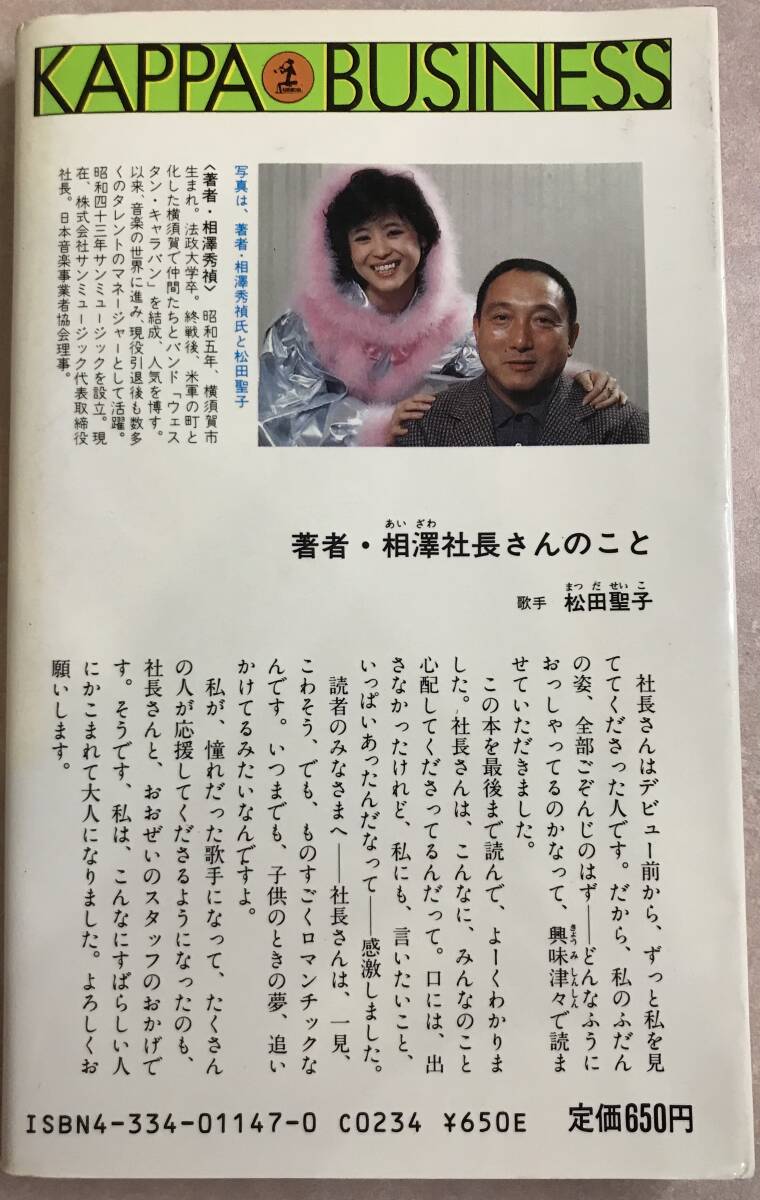 KAPPA BUSINESS
写真は、著者・相澤秀禎氏と松田聖子
〈著者・相澤秀禎〉　昭和五年、横須賀市
生まれ。法政大学卒。終戦後、米軍の町と
化した横須賀で仲間たちとバンド「ウェス
タン・キャラバン」を結成、人気を博す。
以来、音楽の世界に進み、現役引退後も数多
くのタレントのマネージャーとして活躍。
昭和四十三年サンミュージックを設立。現
在、株式会社サンミュージック代表取締役
社長。日本音楽事業者協会理事。
あいざわ
著者・相澤社長さんのこと
まつだせいこ
歌手　松田聖子
社長さんはデビュー前から、ずっと私を見
ててくださった人です。だから、私のふだん
の姿、全部ごぞんじのはず――どんなふうに
おっしゃってるのかなって、興味津々で読ま
きょうみしんしん
せていただきました。
この本を最後まで読んで、よーくわかりま
した。社長さんは、こんなに、みんなのこと
心配してくださってるんだって。口には、出
さなかったけれど、私にも、言いたいこと、
いっぱいあったんだなって――感激しました。
読者のみなさまへ――社長さんは、一見、
こわそう、でも、ものすごくロマンチックな
んです。いつまでも、子供のときの夢、追い
かけてるみたいなんですよ。
私が、憧れだった歌手になって、たくさん
の人が応援してくださるようになったのも、
社長さんと、おおぜいのスタッフのおかげで
す。そうです、私は、こんなにすばらしい人
にかこまれて大人になりました。よろしくお
願いします。
ISBN4-334-01147-0 C0234 ¥650E　定価650円